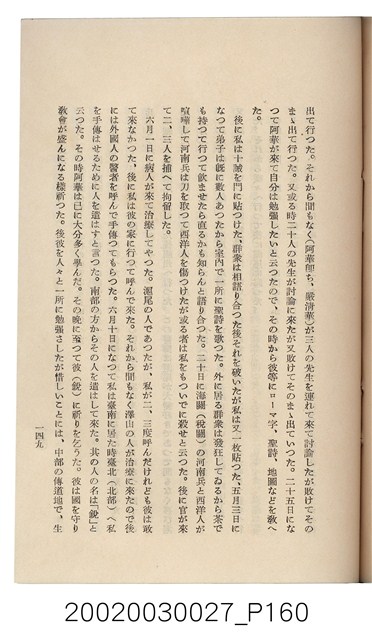 出て行つた。それから間もなく(阿華即ち、嚴清華)が三人の先生を連れて來て討論したが敗けてその
まゝ出て行つた。又或る時二十人の先生が討論に來たが又敗けてそのまゝ出ていつた。二十五日にな
つて阿華が來て自分は勉強したいと云つたので、その時から彼等にローマ字、聖詩、地圖などを敎へ
た。
後に私は十誡を門に貼つけた、群衆は相語り合つた後それを破いたが私は又一枚貼つた、五月三日に
なつて弟子は既に數人あつたから室內で一所に聖詩を歌つた。外に居る群衆は發狂してゐるから茶で
も持つて行つて飲ませたら直るかも知らんと語り合つた。二十日に海關(稅關)の河南兵と西洋人が
喧嘩して河南兵は刀を取つて西洋人を傷つけたが或る者は私をもついでに殺せと云つた。後に官が來
て二、三人を捕へて拘留した。
六月一日に病人が來て治療してやつた。滬尾の人であつたが、私が二、三度呼んだけれども彼は敢
て來なかつた、後に私は彼の家に行つて呼んで來た。それから間もなく澤山の人が治療に來たので後
には外國人の醫者を呼んで手傳つてもらつた。六月十日になつて私は臺南に居た時臺北(北部)へ私
を手傳はせるために人を遣はすと言つた。南部の方からその人を遣はして來た。其の人の名は「銳」と
云つた。その時阿華は已に大分多く學んだ。その晩に至つて彼(銳)に祈りを乞うた。彼は國を守り
敎會が盛んになる樣祈つた。後彼を人々と一所に勉強さしたが惜しいことには、中部の傳道地で、生
一四九
20020030027_P160